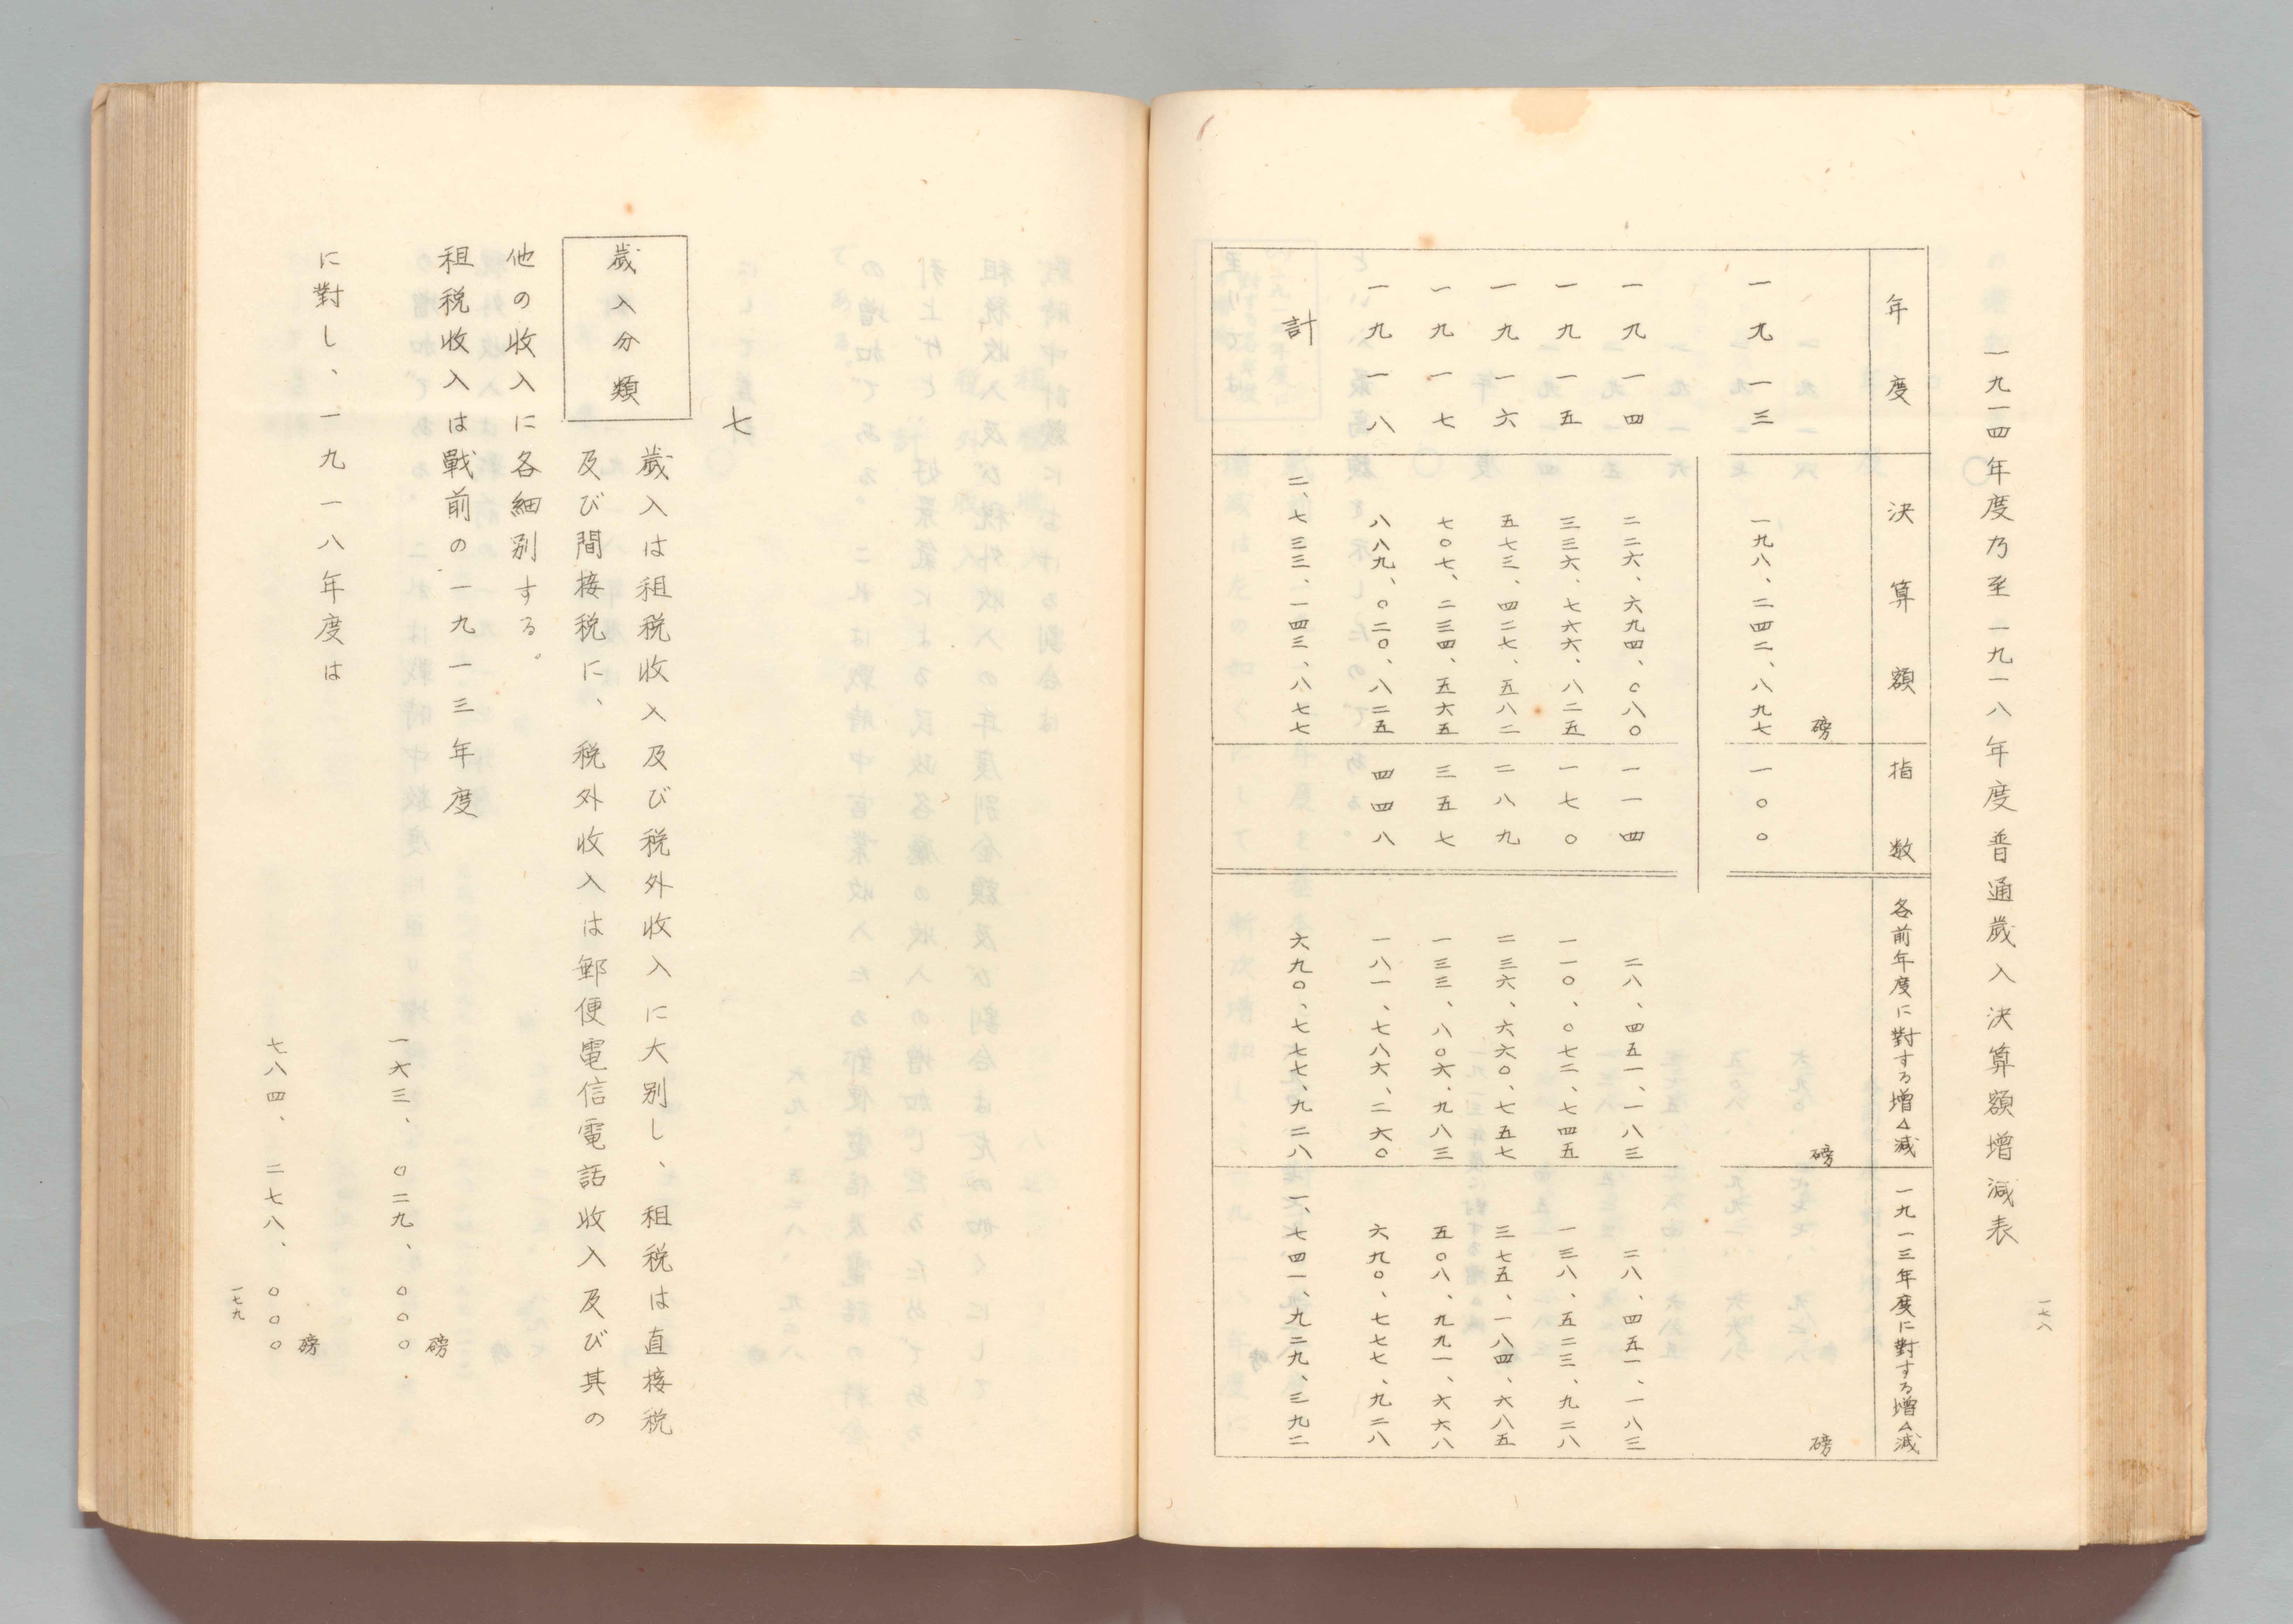 一七八
一九一四年度乃至一九一八年度普通歳入決算額増減表
年度 決算額 指数 各前年度に對する増△減 一九一三年度に對する増△減
磅 磅 磅
一九一三 一九八、二四二、八九七 一〇〇
一九一四 二二六、六九四、〇八〇 一一四 二八、四五一、一八三 二八、四五一、一八三
一九一五 三三六、七六六、八二五 一七〇 一一〇、〇七二、七四五 一三八、五二三、九二八
一九一六 五七三、四二七、五八二 二八九 二三六、六六〇、七五七 三七五、一八四、六八五
一九一七 七〇七、二三四、五六五 三五七 一三三、八〇六、九八三 五〇八、九九一、六六八
一九一八 八八九、〇二〇、八二五 四四八 一八一、七八六、二六〇 六九〇、七七七、九二八
計 二、七三三、一四三、八七七 六九〇、七七七、九二八 一、七四一、九二九、三九二
七
歳入分類
歳入は租税收入及び税外收入に大別し、租税は直接税
及び間接税に、税外收入は郵便電信電話收入及び其の
他の收入に各細別する。
租税收入は戰前の一九一三年度
磅
一六三、〇二九、〇〇〇
に對し、一九一八年度は
磅
七八四、二七八、〇〇〇
一七九